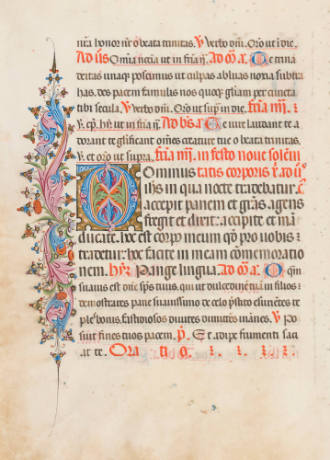 nr̄a honor nr̄ o beata trinitas. V Verbo dn̄i. Or̄o ut in die.
Ad iīs Omia necia ut in fria ii. Ad oā a. Te trina
deitas unaqꝫ poscimus ut culpas abluas noxia subtra
has. des pacem famulis nos quoqꝫ gl̄iam per cuncta
tibi secula. V Verbo dn̄i. Or̄o ut supͣ in die. fria iii.
ut in fria ii. Ad bs̄ a. Te iure laudant te a
dorant te glificant om̄es creature tue o beata trinitas.
V. et or̄o ut supra. fria iiii. in festo noue solem
Dominus tatis corporis
iħs in qua nocte tradebatur.
accepit panem et grās agens
fregit et dixit: accipite et mā
ducate. hoc est corp⁹ meum qđ pro uobis
tradetur: hoc facite in meam commemoratio
nem. hȳr Pange lingua. Ad oā a. O q̄m
suauis est dn̄e sps̄ tuus, qui ut dulcedinē tuā in filios
demostrares pane suauissimo de celo p̄stito esurientes re
ples bonis. fastidiosos diuites dimittēs inanes. V Po
suit fines tuos pacem. p. Et adipe frumenti saci
at te. Or̄a